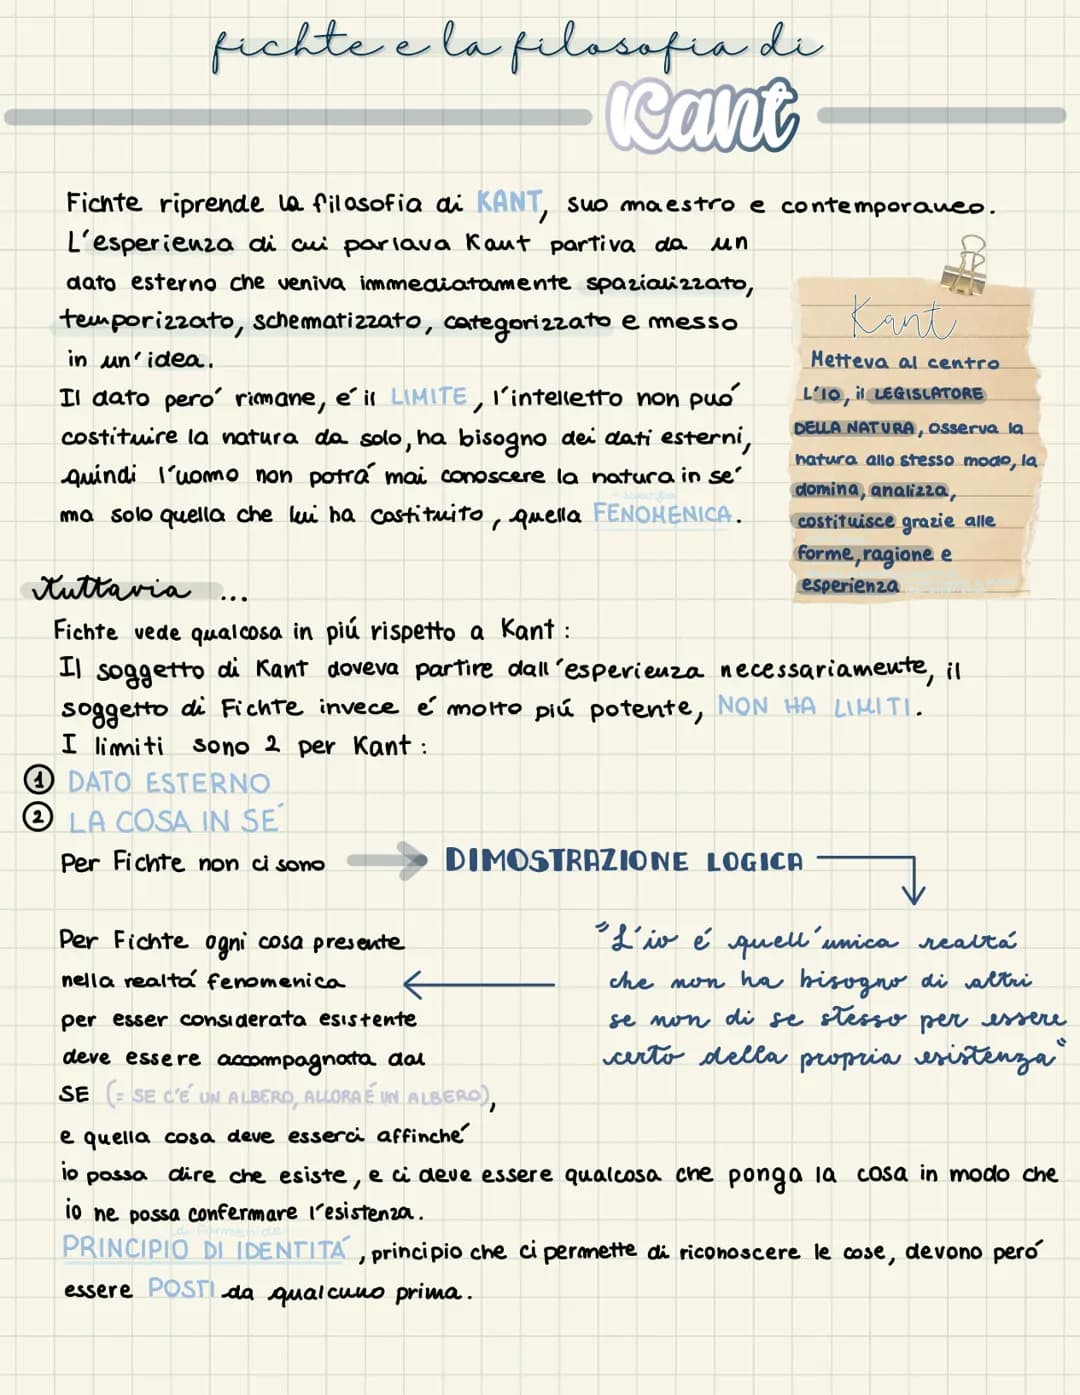 fichte e la filosofia di
Kant
Fichte riprende la filosofia di KANT, suo maestro e contemporaneo.
L'esperienza di cui parlava Kant partiva da un
dato esterno che veniva immediatamente spazializzato,
temporizzato, schematizzato, categorizzato e messo
in un'idea.
Il dato peró rimane, é il LIMITE, l'intelletto non puó
costituire la natura da solo, ha bisogno dei dati esterni,
quindi l'uomo non potrá mai conoscere la natura in sé
ma solo quella che lui ha costituito, quella FENOMENICA.
Kant
Metteva al centro
L'IO, il LEGISLATORE
DELLA NATURA, osserva la
natura allo stesso modo, la
domina, analizza,
costituisce grazie alle
forme, ragione e
esperienza
Tuttavia ...
Fichte vede qualcosa in piú rispetto a Kant:
Il soggetto di Kant doveva partire dall'esperienza necessariamente, il
soggetto di Fichte invece é molto piú potente, NON HA LIMITI.
I limiti sono 2 per Kant:
1 DATO ESTERNO
2 LA COSA IN SÉ
Per Fichte non ci sono
DIMOSTRAZIONE LOGICA
"L'io é quell'unica realtá
che non ha bisogno di altri
se non di se stesso per essere
certo della propria esistenza"
Per Fichte ogni cosa presente
nella realtá fenomenica
per esser considerata esistente
deve essere accompagnata dal
SE (= SE C'É UN ALBERO, ALLORA É UN ALBERO),
e quella cosa deve esserci affinché
io possa dire che esiste, e ci deve essere qualcosa che ponga la cosa in modo che
io ne possa confermare l'esistenza.
PRINCIPIO DI IDENTITÁ, principio che ci permette di riconoscere le cose, devono peró
essere POSTI da qualcuno prima.